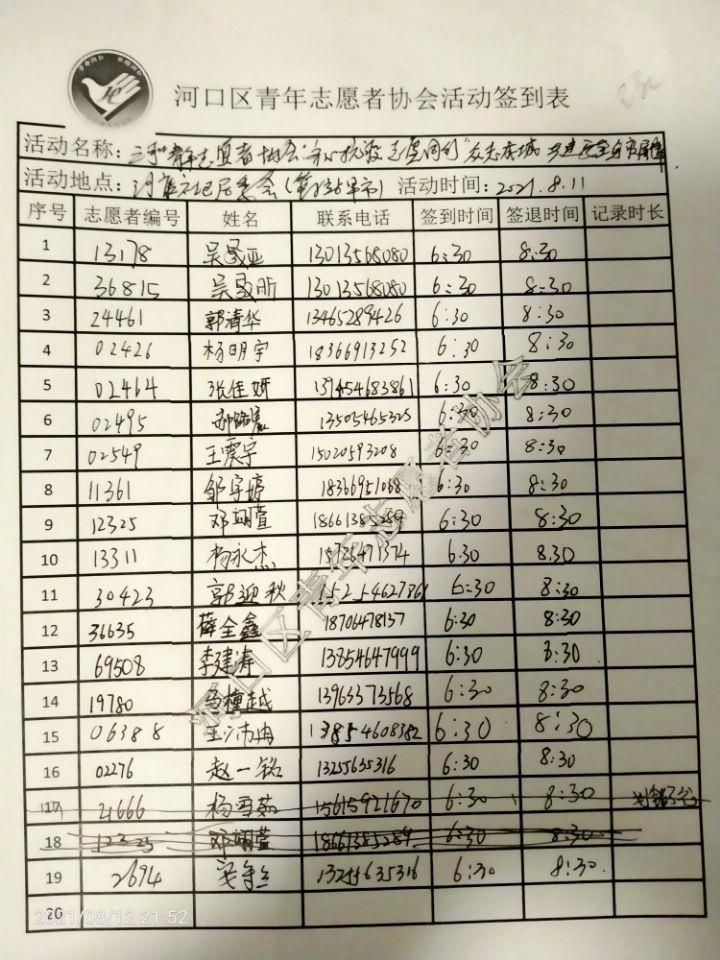 河口区青年志愿者协会活动签到表
活动名称： 青年志愿者协会 众志成城
活动地点： 居委会 活动时间：2021.8.11
序号 志愿者编号 姓名 联系电话 签到时间 签退时间 记录时长
1 13178 13013568080 6:30 8:30
2 36815 13013568080 6:30 8:30
3 24461 郭清华 13465289426 6:30 8:30
4 02426 杨明宇 18366913252 6:30 8:30
5 02464 张佳妍 6:30 8:30
6 02495 13505465325 6:30 8:30
7 02549 王震宇 15020593208 6:30 8:30
8 11361 邹宇婷 18366951068 6:30 8:30
9 12325 邓翊萱 18661385289 6:30 8:30
10 13311 杨永杰 6:30 8:30
11 30423 郭迎秋 6:30 8:30
12 36635 薛全鑫 18706478137 6:30 8:30
13 69508 李建涛 13854647999 6:30 8:30
14 19780 13963373568 6:30 8:30
15 06388 13854608382 6:30 8:30
16 02276 赵一铭 13255635316 6:30 8:30
17 21666 杨雪茹 15615921670 6:30 8:30
18 12325 邓翊萱 18661385289 6:30 8:30
19 2694 6:30 8:30
20
河口区青年志愿者协会
2021/08/12 21:52